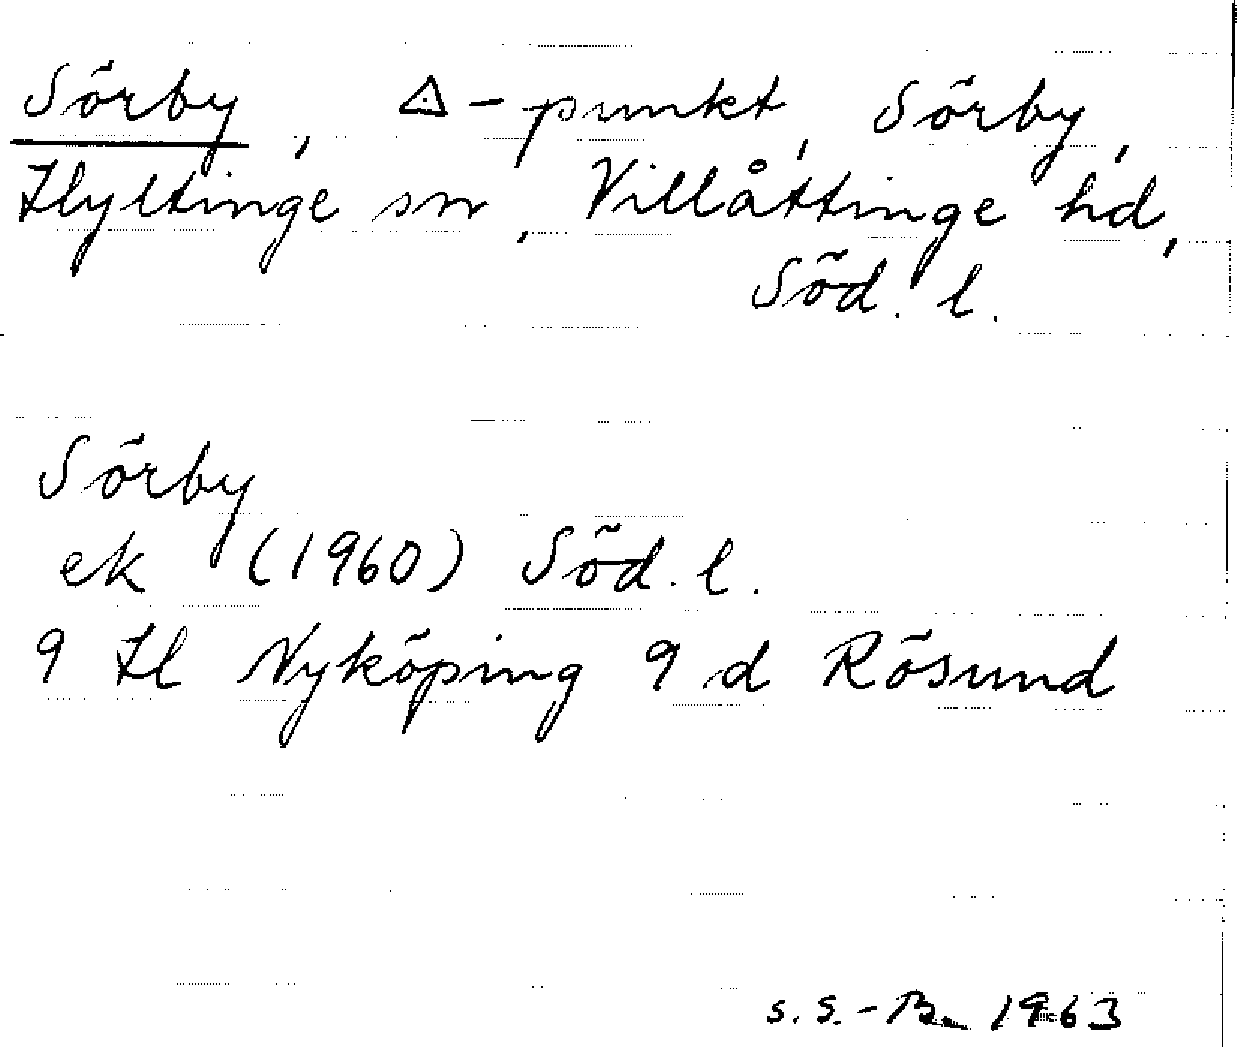 Sörby, △-punkt, Sörby,
Hyltinge sn, Villåttinge hd,
Söd. l.
Sörby
ek (1960) Söd. l.
9 H Nyköping 9 d Rösund
S. S.-B. 1963